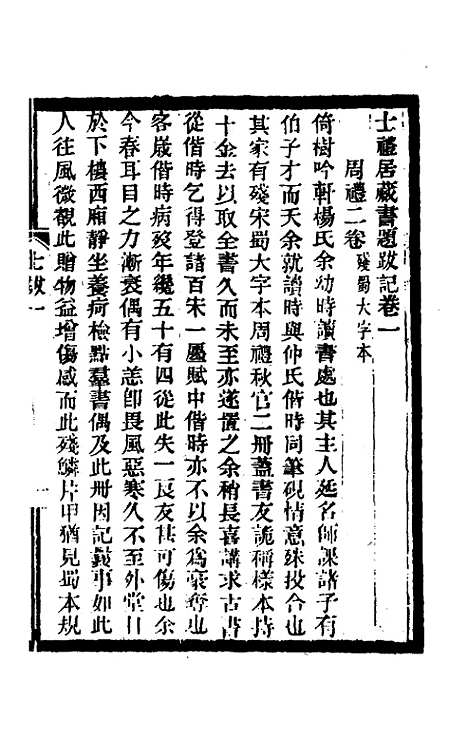 士禮居藏書題跋記卷一
周禮二卷 殘蜀大字本
倚樹吟軒楊氏余幼時讀書處也其主人延名師課諸子有
伯子才而夭余就讀時與仲氏偕時同筆硯情意殊投合也
其家有殘宋蜀大字本周禮秋官二冊蓋書友詭稱樣本持
十金去以取全書久而未至亦遂置之余稍長喜講求古書
從偕時乞得登諸百宋一廛賦中偕時亦不以余為豪奪也
客歲偕時病歿年纔五十有四從此失一良友甚可傷也余
今春耳目之力漸衰偶有小恙卽畏風惡寒久不至外堂日
於下樓西廂靜坐養疴檢點羣書偶及此冊因記數事如此
人往風微觀此贈物益增傷感而此殘鱗片甲猶見蜀本規
士跋一